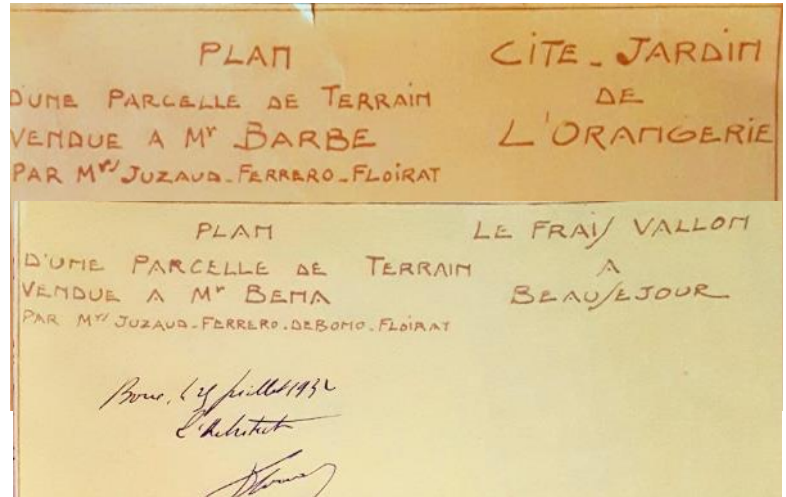 PLAN
D'UNE PARCELLE DE TERRAIN
VENDUE A Mr BARBE
PAR Mrs JUZAUD-FERRERO-FLOIRAT
CITE-JARDIN
DE
L'ORANGERIE
PLAN
D'UNE PARCELLE DE TERRAIN
VENDUE A Mr BENA
PAR Mrs JUZAUD-FERRERO.DEBONO.FLOIRAT
LE FRAIS VALLON
A
BEAUSEJOUR
Bone, juillet 193
L'Architecte